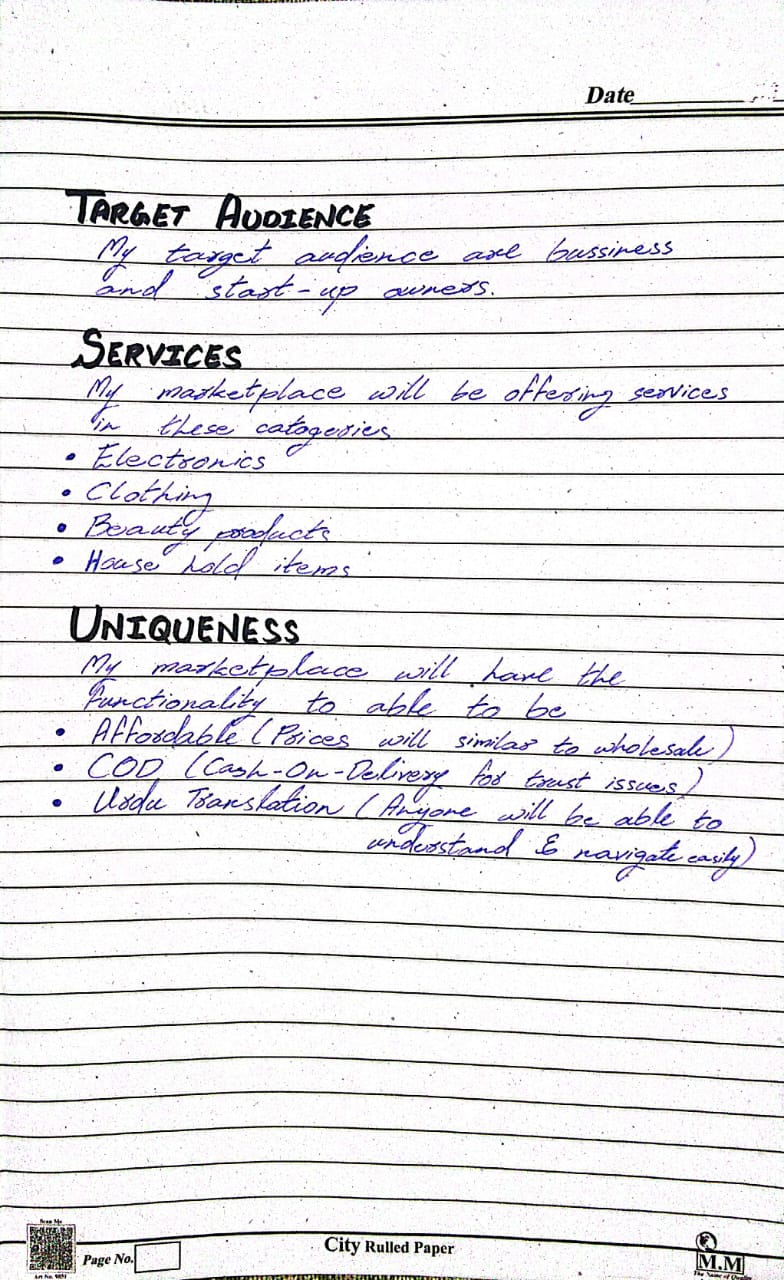 Date
TARGET AUDIENCE
My target audience are bussiness
and start-up owners.
SERVICES
My marketplace will be offering services
in these catogeries
• Electronics
• Clothing
• Beauty products
• House hold items
UNIQUENESS
My marketplace will have the
functionality to able to be
• Affordable (Prices will similar to wholesale)
• COD (Cash-On-Delivery for trust issues)
• Urdu Translation (Anyone will be able to
understand & navigate easily)
Scan Me
Page No.
City Rulled Paper
M.M